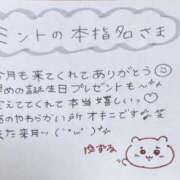 ミントの本指名さま
今月も来てくれてありがとう☺
早めの誕生日プレゼントも〜
えててくれて本当嬉しいっ♡
のやわらかい所 オキニですな 笑
また来月〜(˙ᵕ˙ )
ゆずる